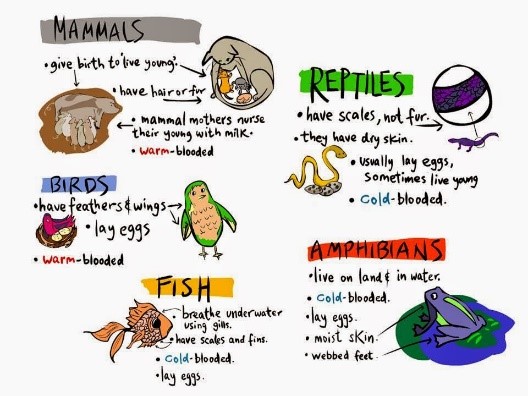 MAMMALS
• give birth to 'live young'.
• have hair or fur
• mammal mothers nurse
their young with milk.
• warm-blooded
BIRDS
• have feathers & wings
• lay eggs
• warm-blooded
FISH
• breathe underwater
using gills.
• have scales and fins.
• Cold-blooded.
• lay eggs.
REPTILES
• have scales, not fur.
• they have dry skin.
• usually lay eggs,
sometimes live young
• Cold-blooded.
AMPHIBIANS
• live on land & in water.
• Cold-blooded.
• lay eggs.
• moist skin.
• webbed feet